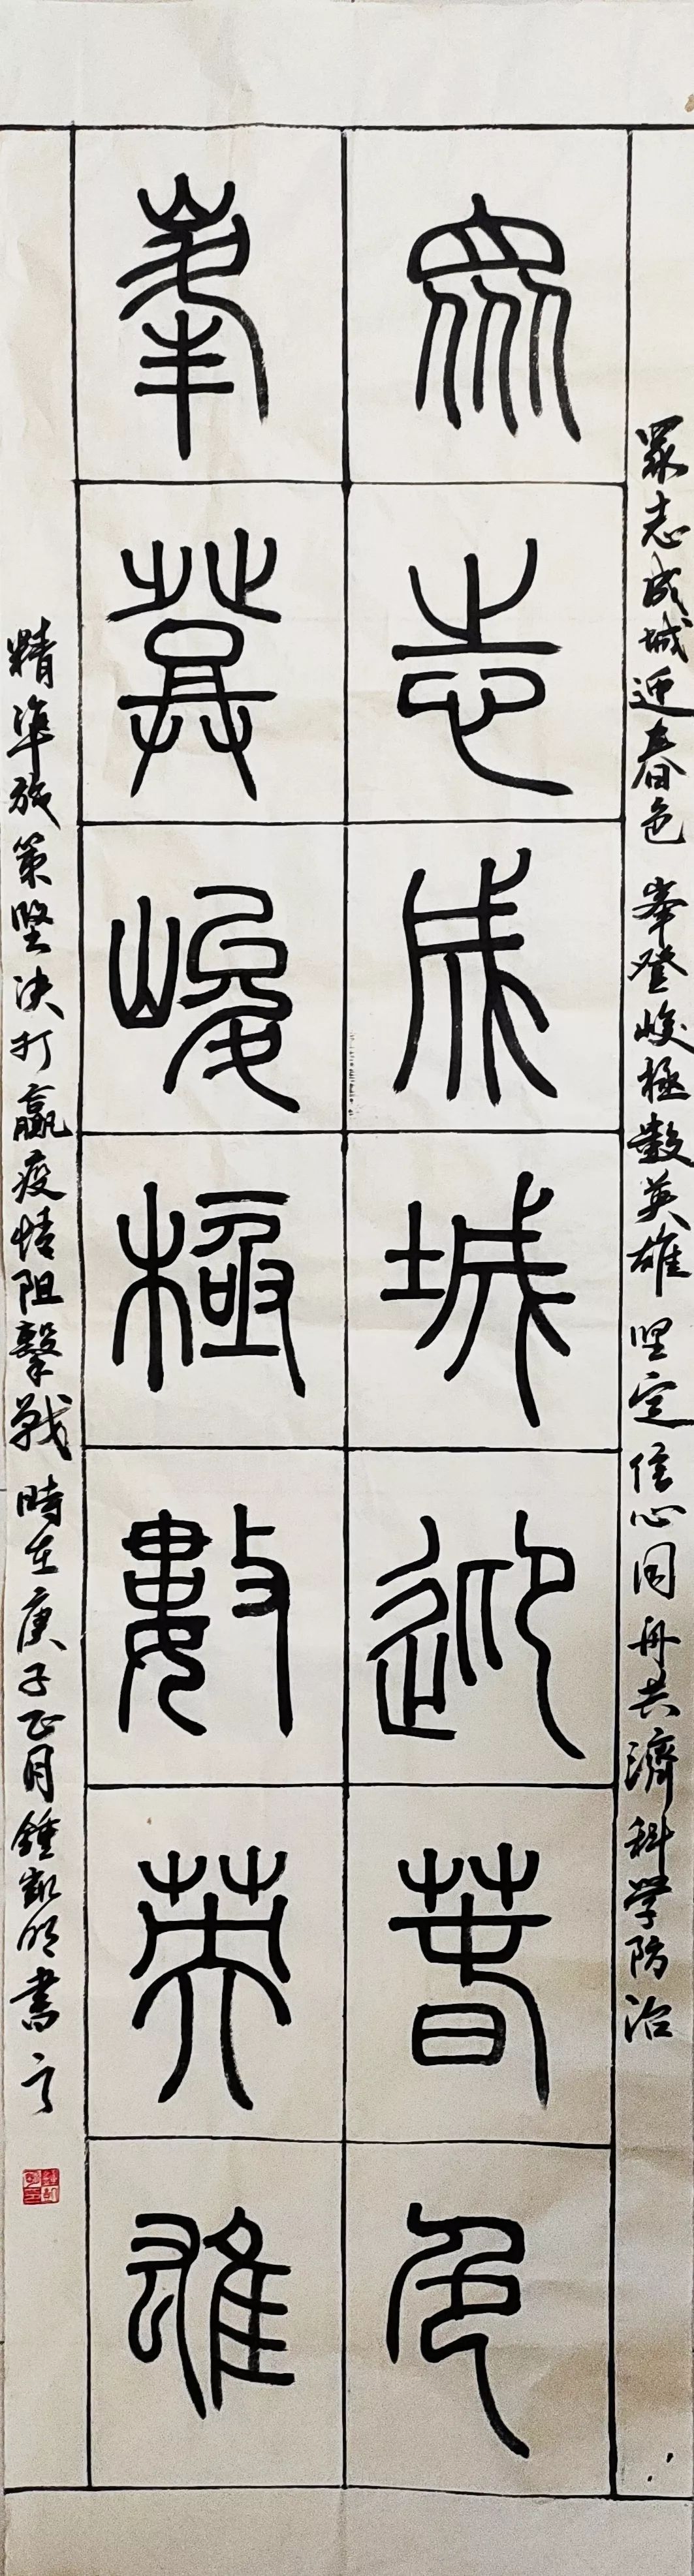 眾志成城迎春色
峯登峻極數英雄
眾志成城迎春色 峯登峻極數英雄 坚定信心同舟共濟科学防治
精準施策堅决打赢疫情阻擊戰 時在庚子正月鍾凱明書